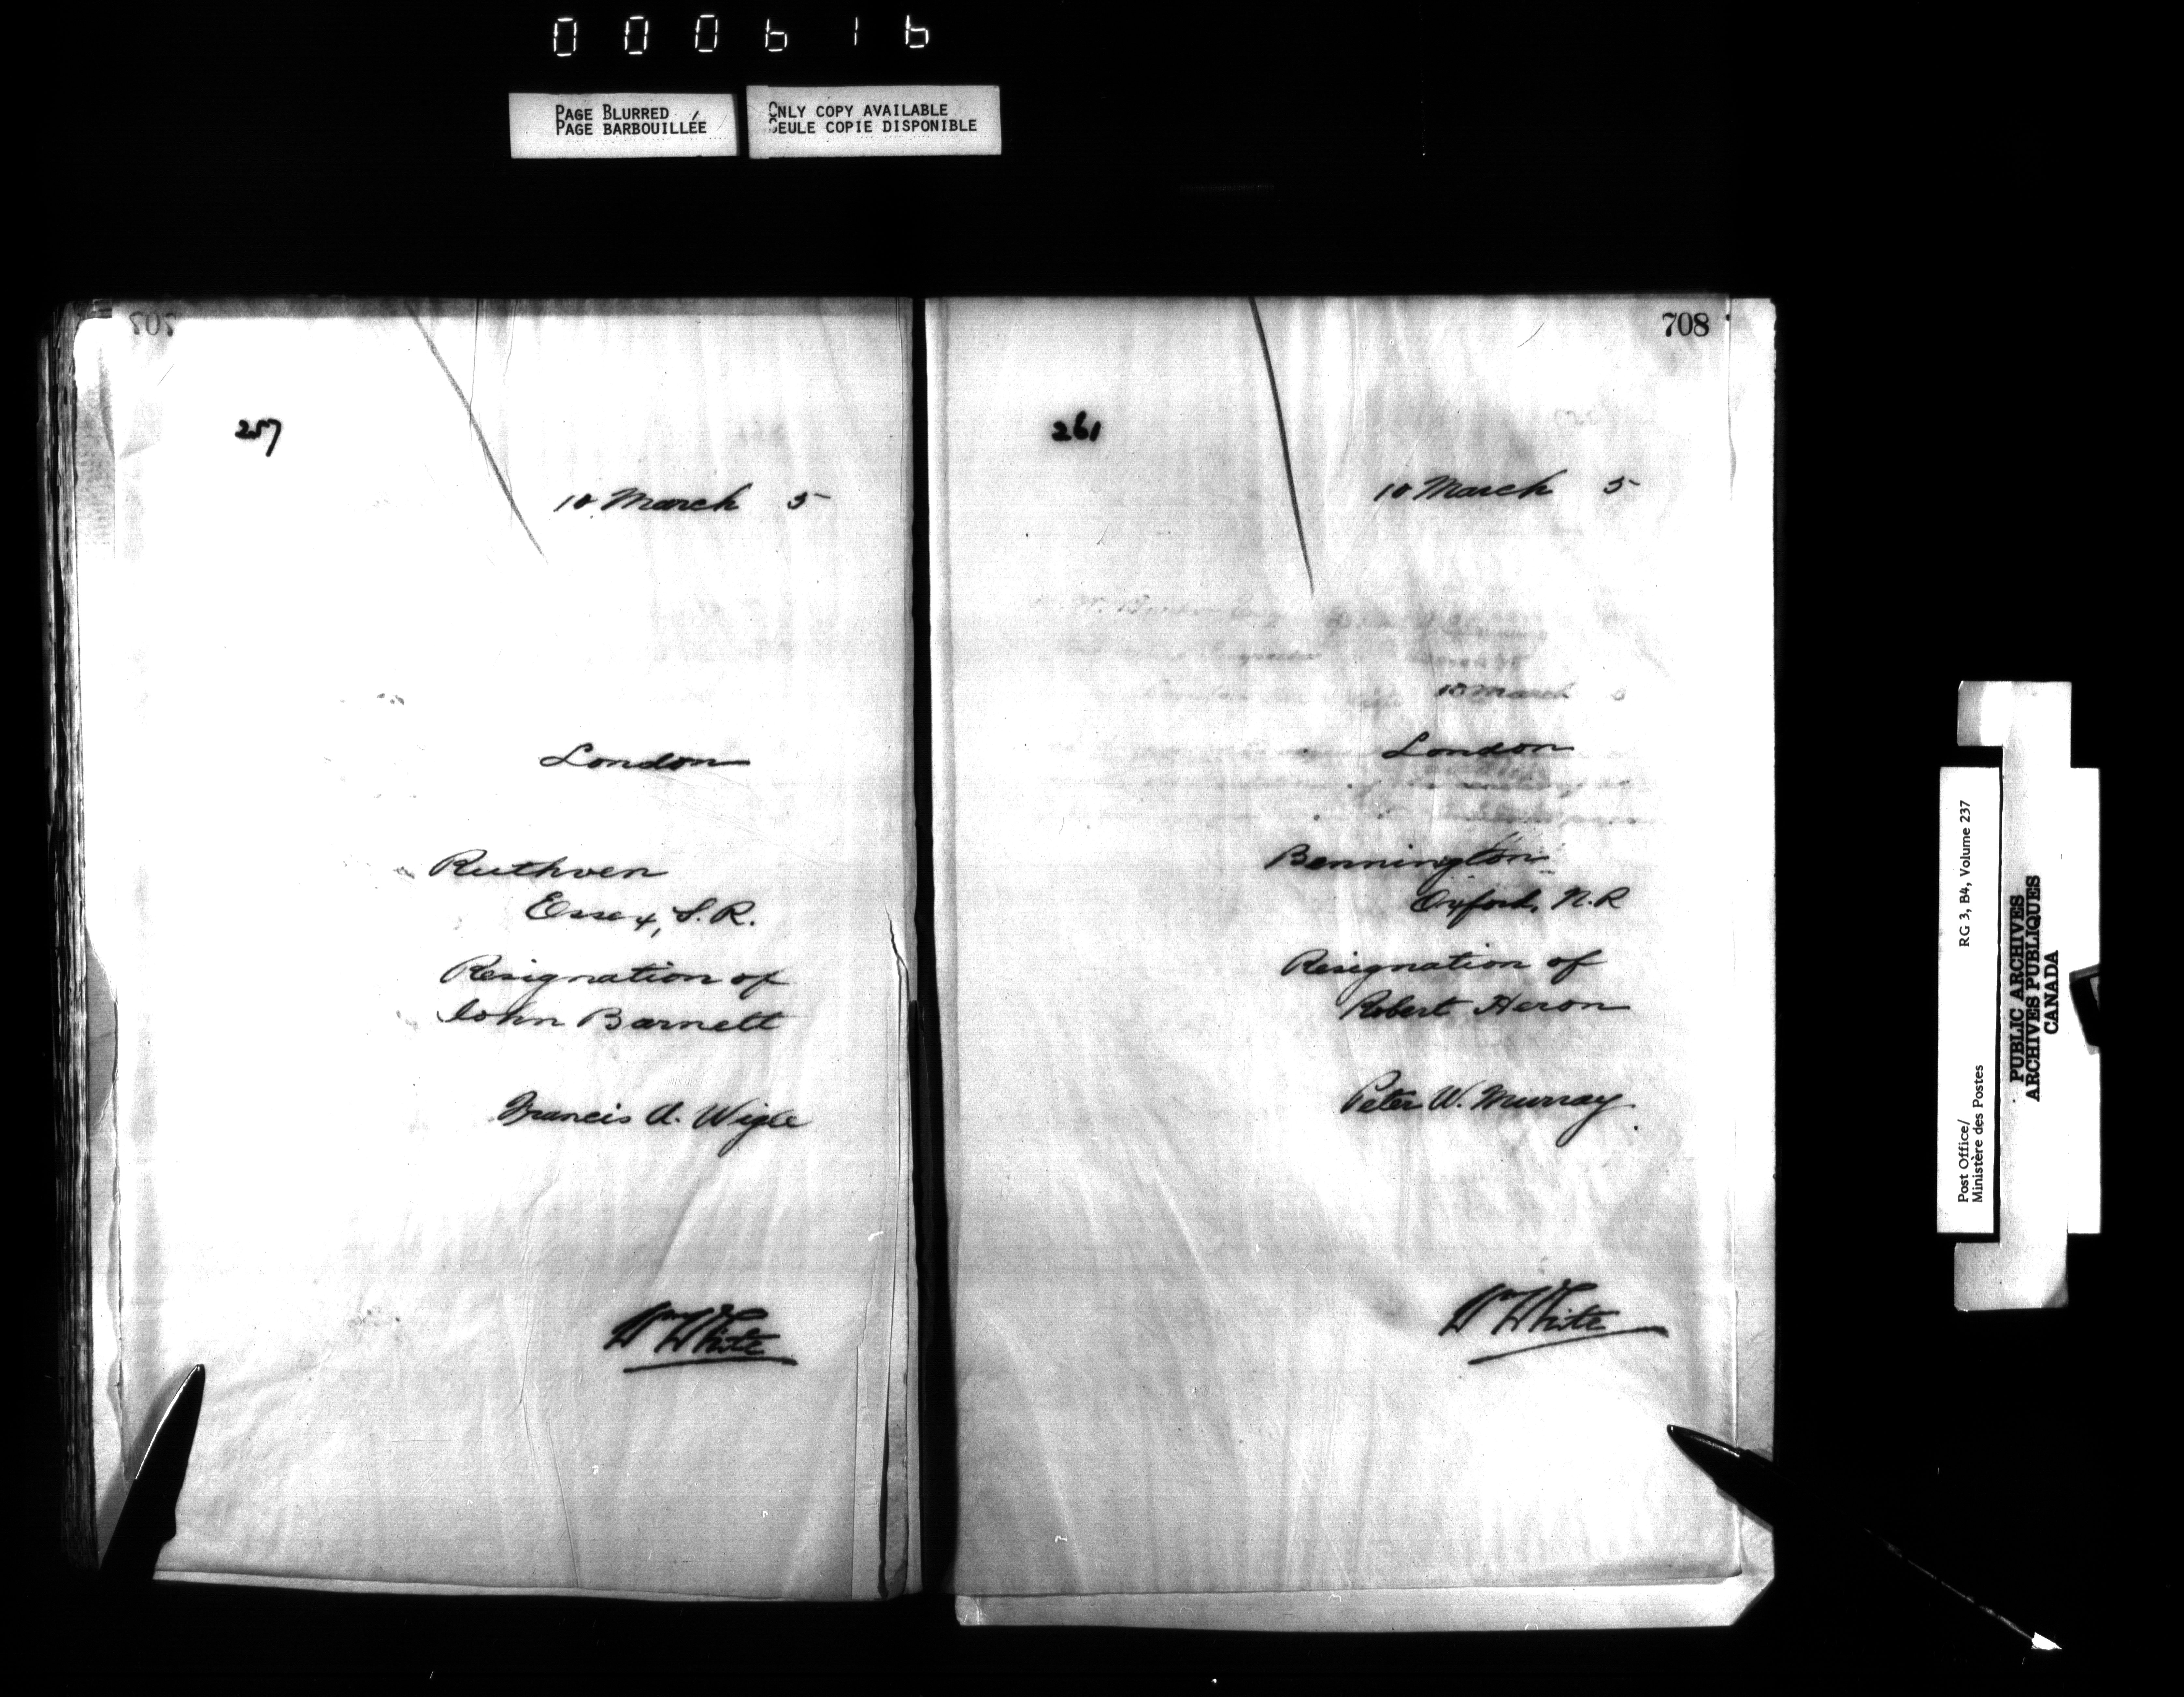 000616
PAGE BLURRED
PAGE BARBOUILLÉE
ONLY COPY AVAILABLE
SEULE COPIE DISPONIBLE
257
10 March 5
London
Ruthven
Essex, S.R.
Resignation of
John Barnett
Francis A. Wigle
Wm White
708
261
10 March 5
10 March 5
London
Bennington
Oxford, N.R
Resignation of
Robert Heron
Peter W. Murray.
Wm White
Post Office/ RG 3, B4, Volume 237
Ministère des Postes
PUBLIC ARCHIVES
ARCHIVES PUBLIQUES
CANADA